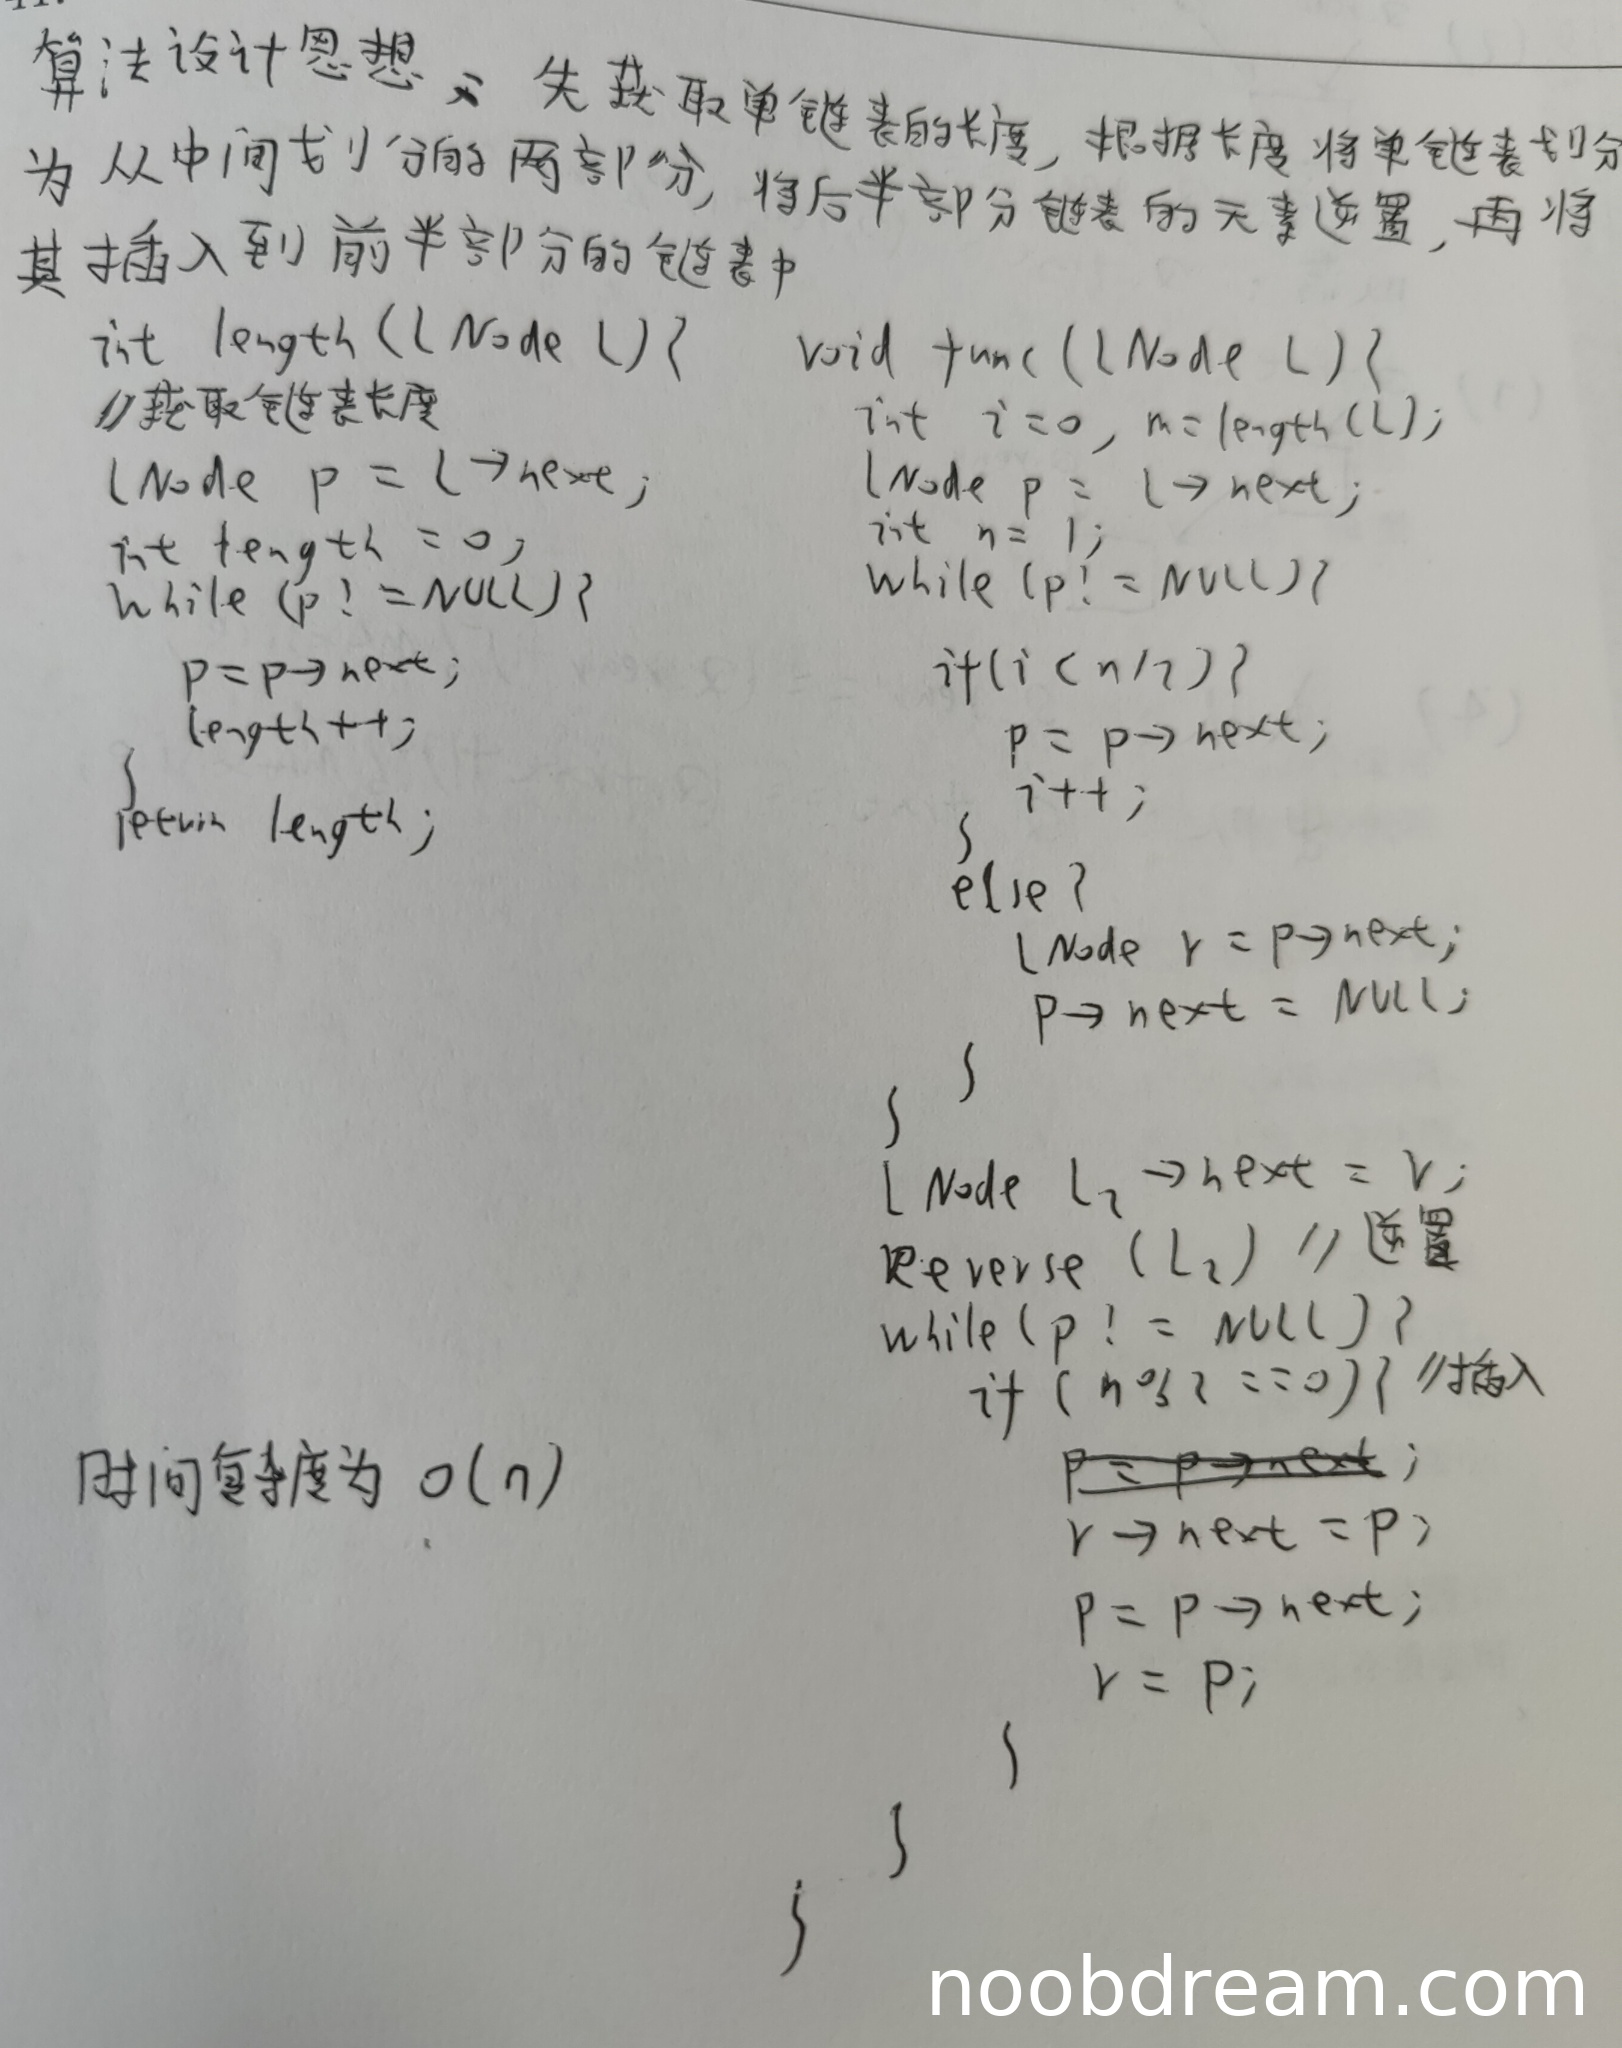 算法设计思想: 先获取单链表的长度, 根据长度将单链表划分
为从中间划分的两部分, 将后半部分链表的元素逆置, 再将
其插入到前半部分的链表中
int length(LNode L){
//获取链表长度
LNode p = L->next;
int length = 0;
while (p!=NULL){
p=p->next;
length++;
}
return length;
时间复杂度为 O(n)
void func(LNode L){
int i=0, m=length(L);
LNode p = L->next;
int n=1;
while (p!=NULL){
if(i<n/2){
p = p->next;
i++;
}
else{
LNode r = p->next;
p->next = NULL;
}
}
LNode L2->next = r;
Reverse (L2) //逆置
while(p!=NULL){
if (n%2==0){ //插入
p = p->next;
r->next = p;
p = p->next;
r = p;
}
}
}
noobdream.com